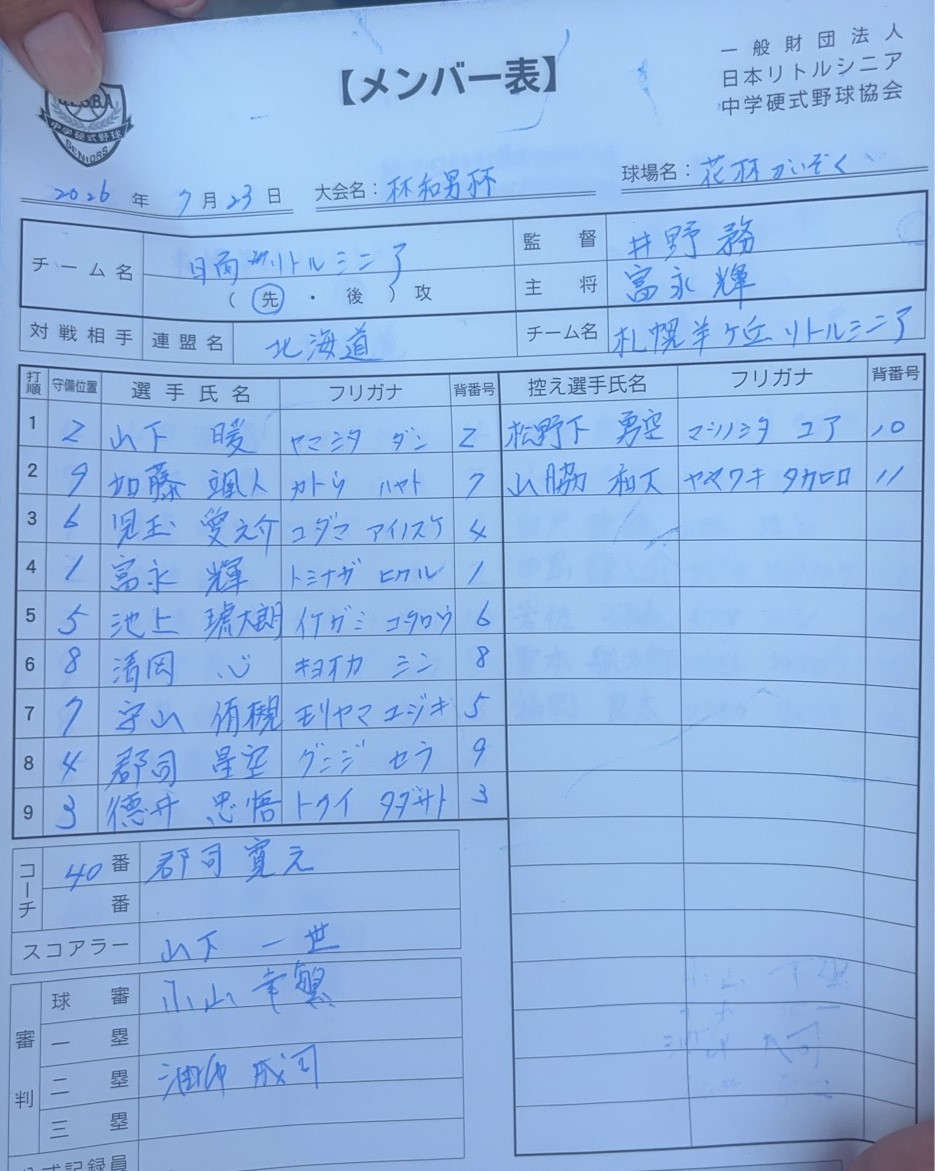 【メンバー表】
一般財団法人
日本リトルシニア
中学硬式野球協会
中学硬式野球
SENIORS
2026年 7月23日 大会名：林和男杯 球場名：花林かいぞく
チーム名 日南 リトルシニア
(先・後)攻
監督 井野 務
主将 富永 輝
対戦相手 連盟名 北海道 チーム名 札幌羊ケ丘リトルシニア
打順 守備位置 選手氏名 フリガナ 背番号 控え選手氏名 フリガナ 背番号
1 2 山下 暖 ヤマシタ ダン 2 松野下 勇空 マツノシタ ユア 10
2 9 加藤 颯人 カトウ ハヤト 7 山脇 和大 ヤマワキ タカヒロ 11
3 6 児玉 愛之介 コダマ アイノスケ 4
4 1 富永 輝 トミナガ ヒカル 1
5 5 池上 琥太朗 イケガミ コタロウ 6
6 8 清岡 心 キヨオカ シン 8
7 7 守山 侑槻 モリヤマ ユヅキ 5
8 4 郡司 星空 グンジ セラ 9
9 3 德井 忠悟 トクイ タダサト 3
コーチ 40番 郡司 寛元
番
スコアラー 山下 一世
審判
球審 小山 幸
一塁
二塁 成司
三塁
公式記録員